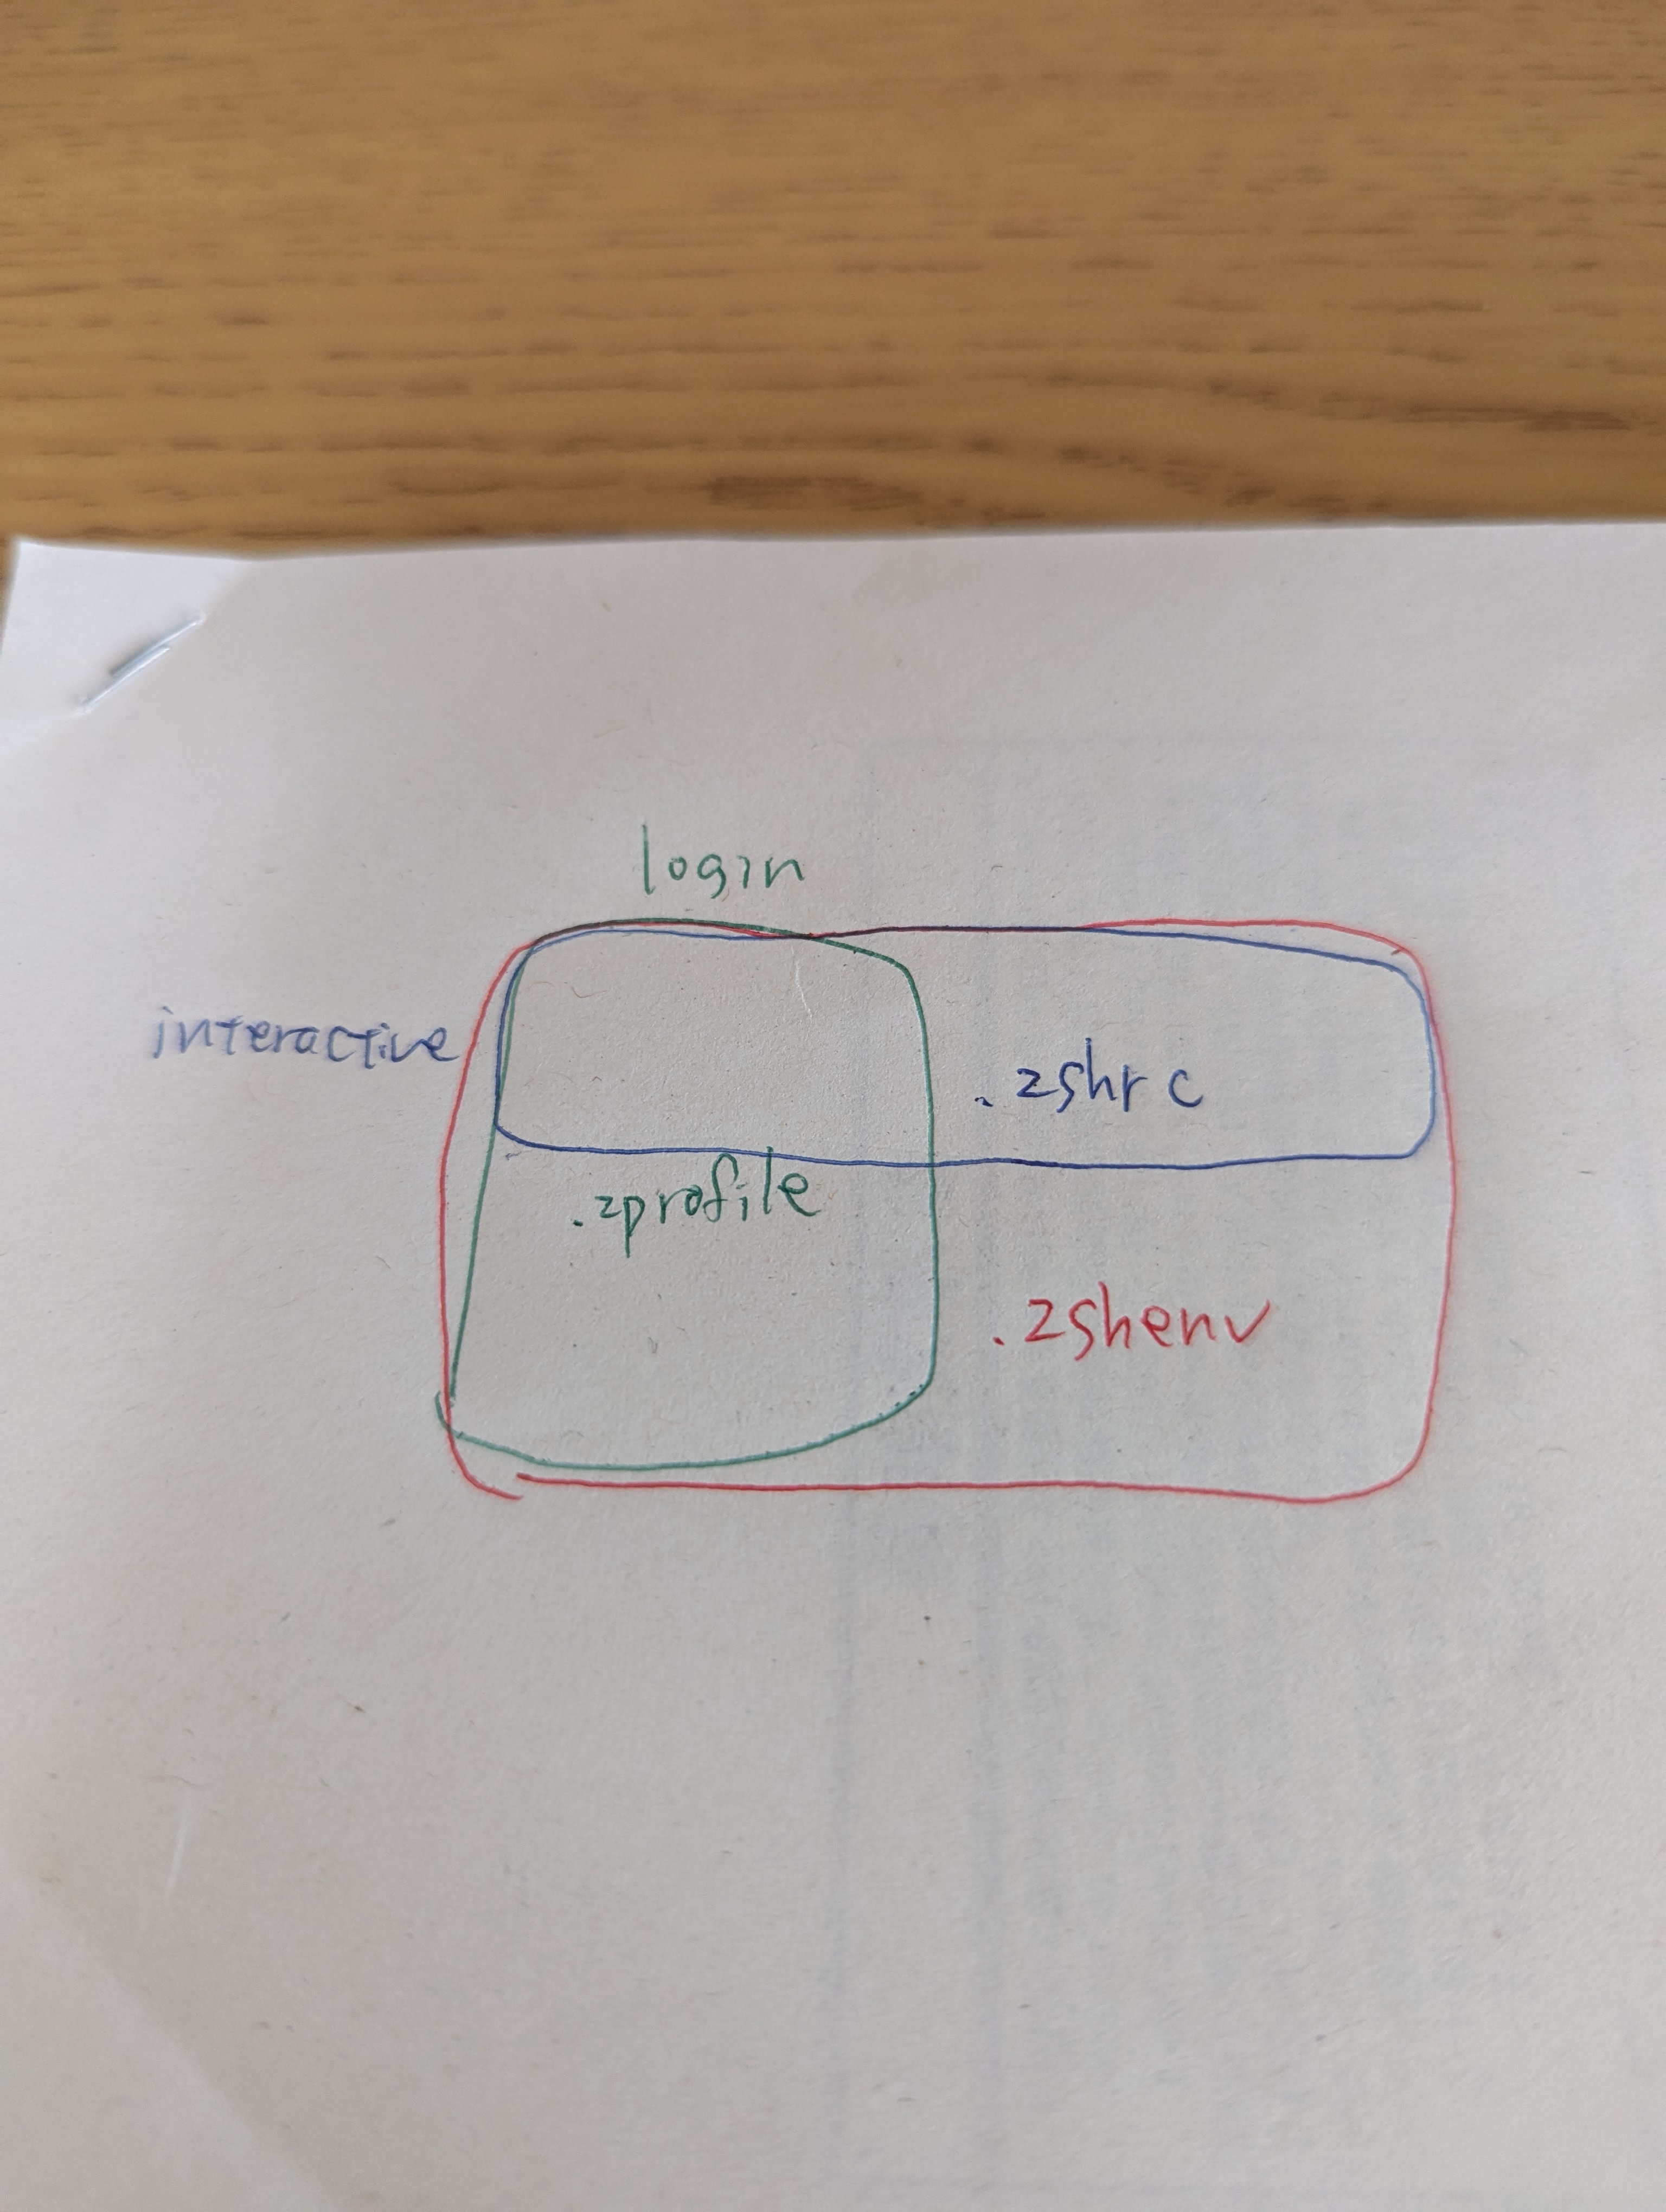 login
interactive
.zshrc
.zprofile
.zshenv